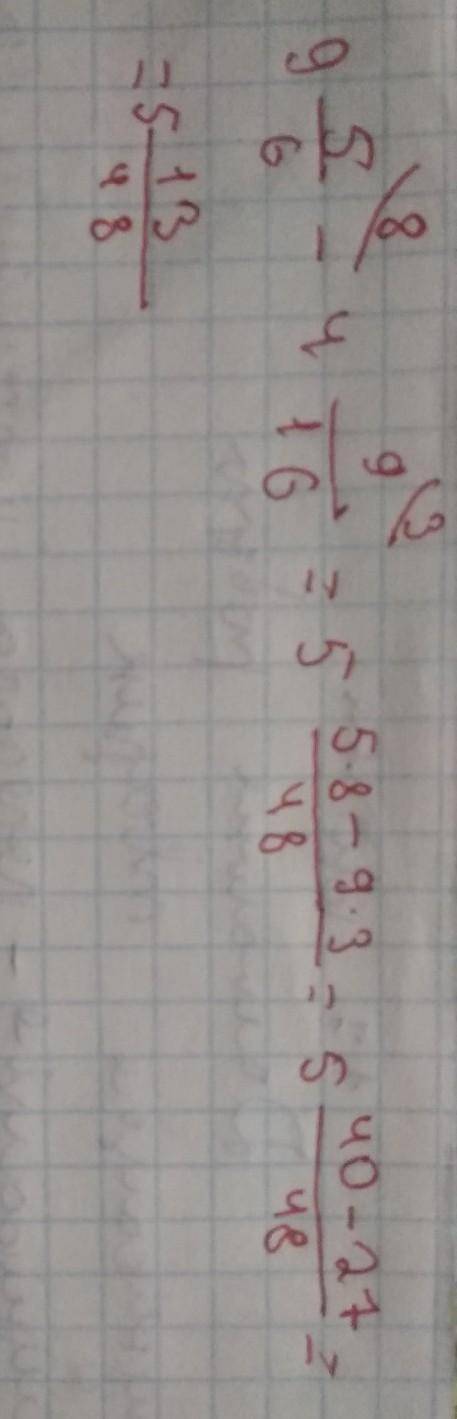 9 5/6 ⁸ - 4 9/16 ³ = 5 (5·8-9·3)/48 = 5 (40-27)/48 =
= 5 13/48